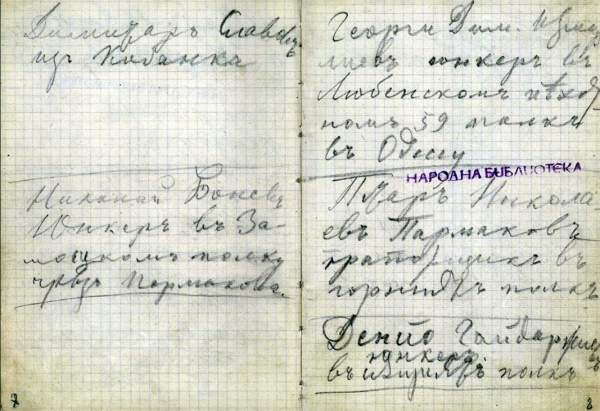 Димитръ Славовъ
изъ Кобанка
Николай Боневъ
Юнкеръ въ За-
мошкомъ полку
чрезъ Пармакова.
Георги Дим.
лиевъ юнкеръ въ
Любенскомъ пѣхот
номъ 59 полкъ
въ Одессу
НАРОДНА БИБЛИОТЕКА
Петъръ Никола
евъ Пармаковъ
прапорщикъ въ
полкъ
Денйо Гайдаржиевъ
юнкеръ
въ полкъ
8